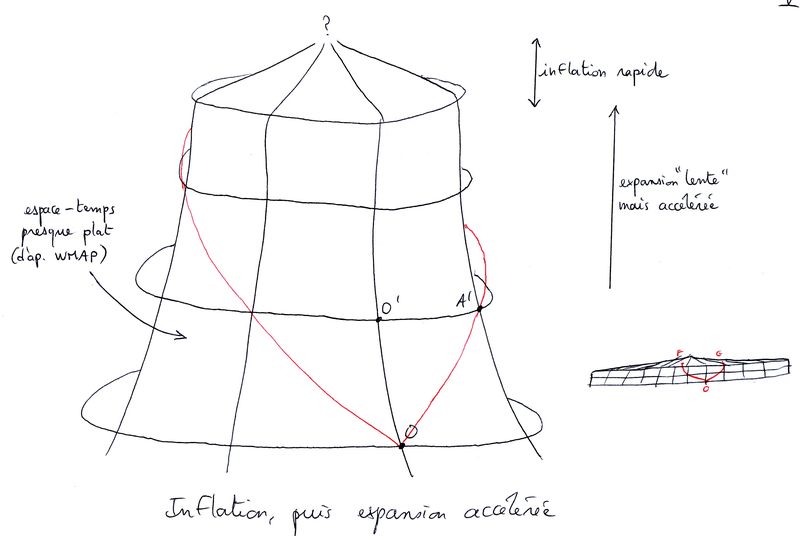 ?
inflation rapide
expansion "lente"
mais accélérée
espace-temps
presque plat
(d'ap. WMAP)
O'
A'
E
G
O
O
Inflation, puis expansion accélérée